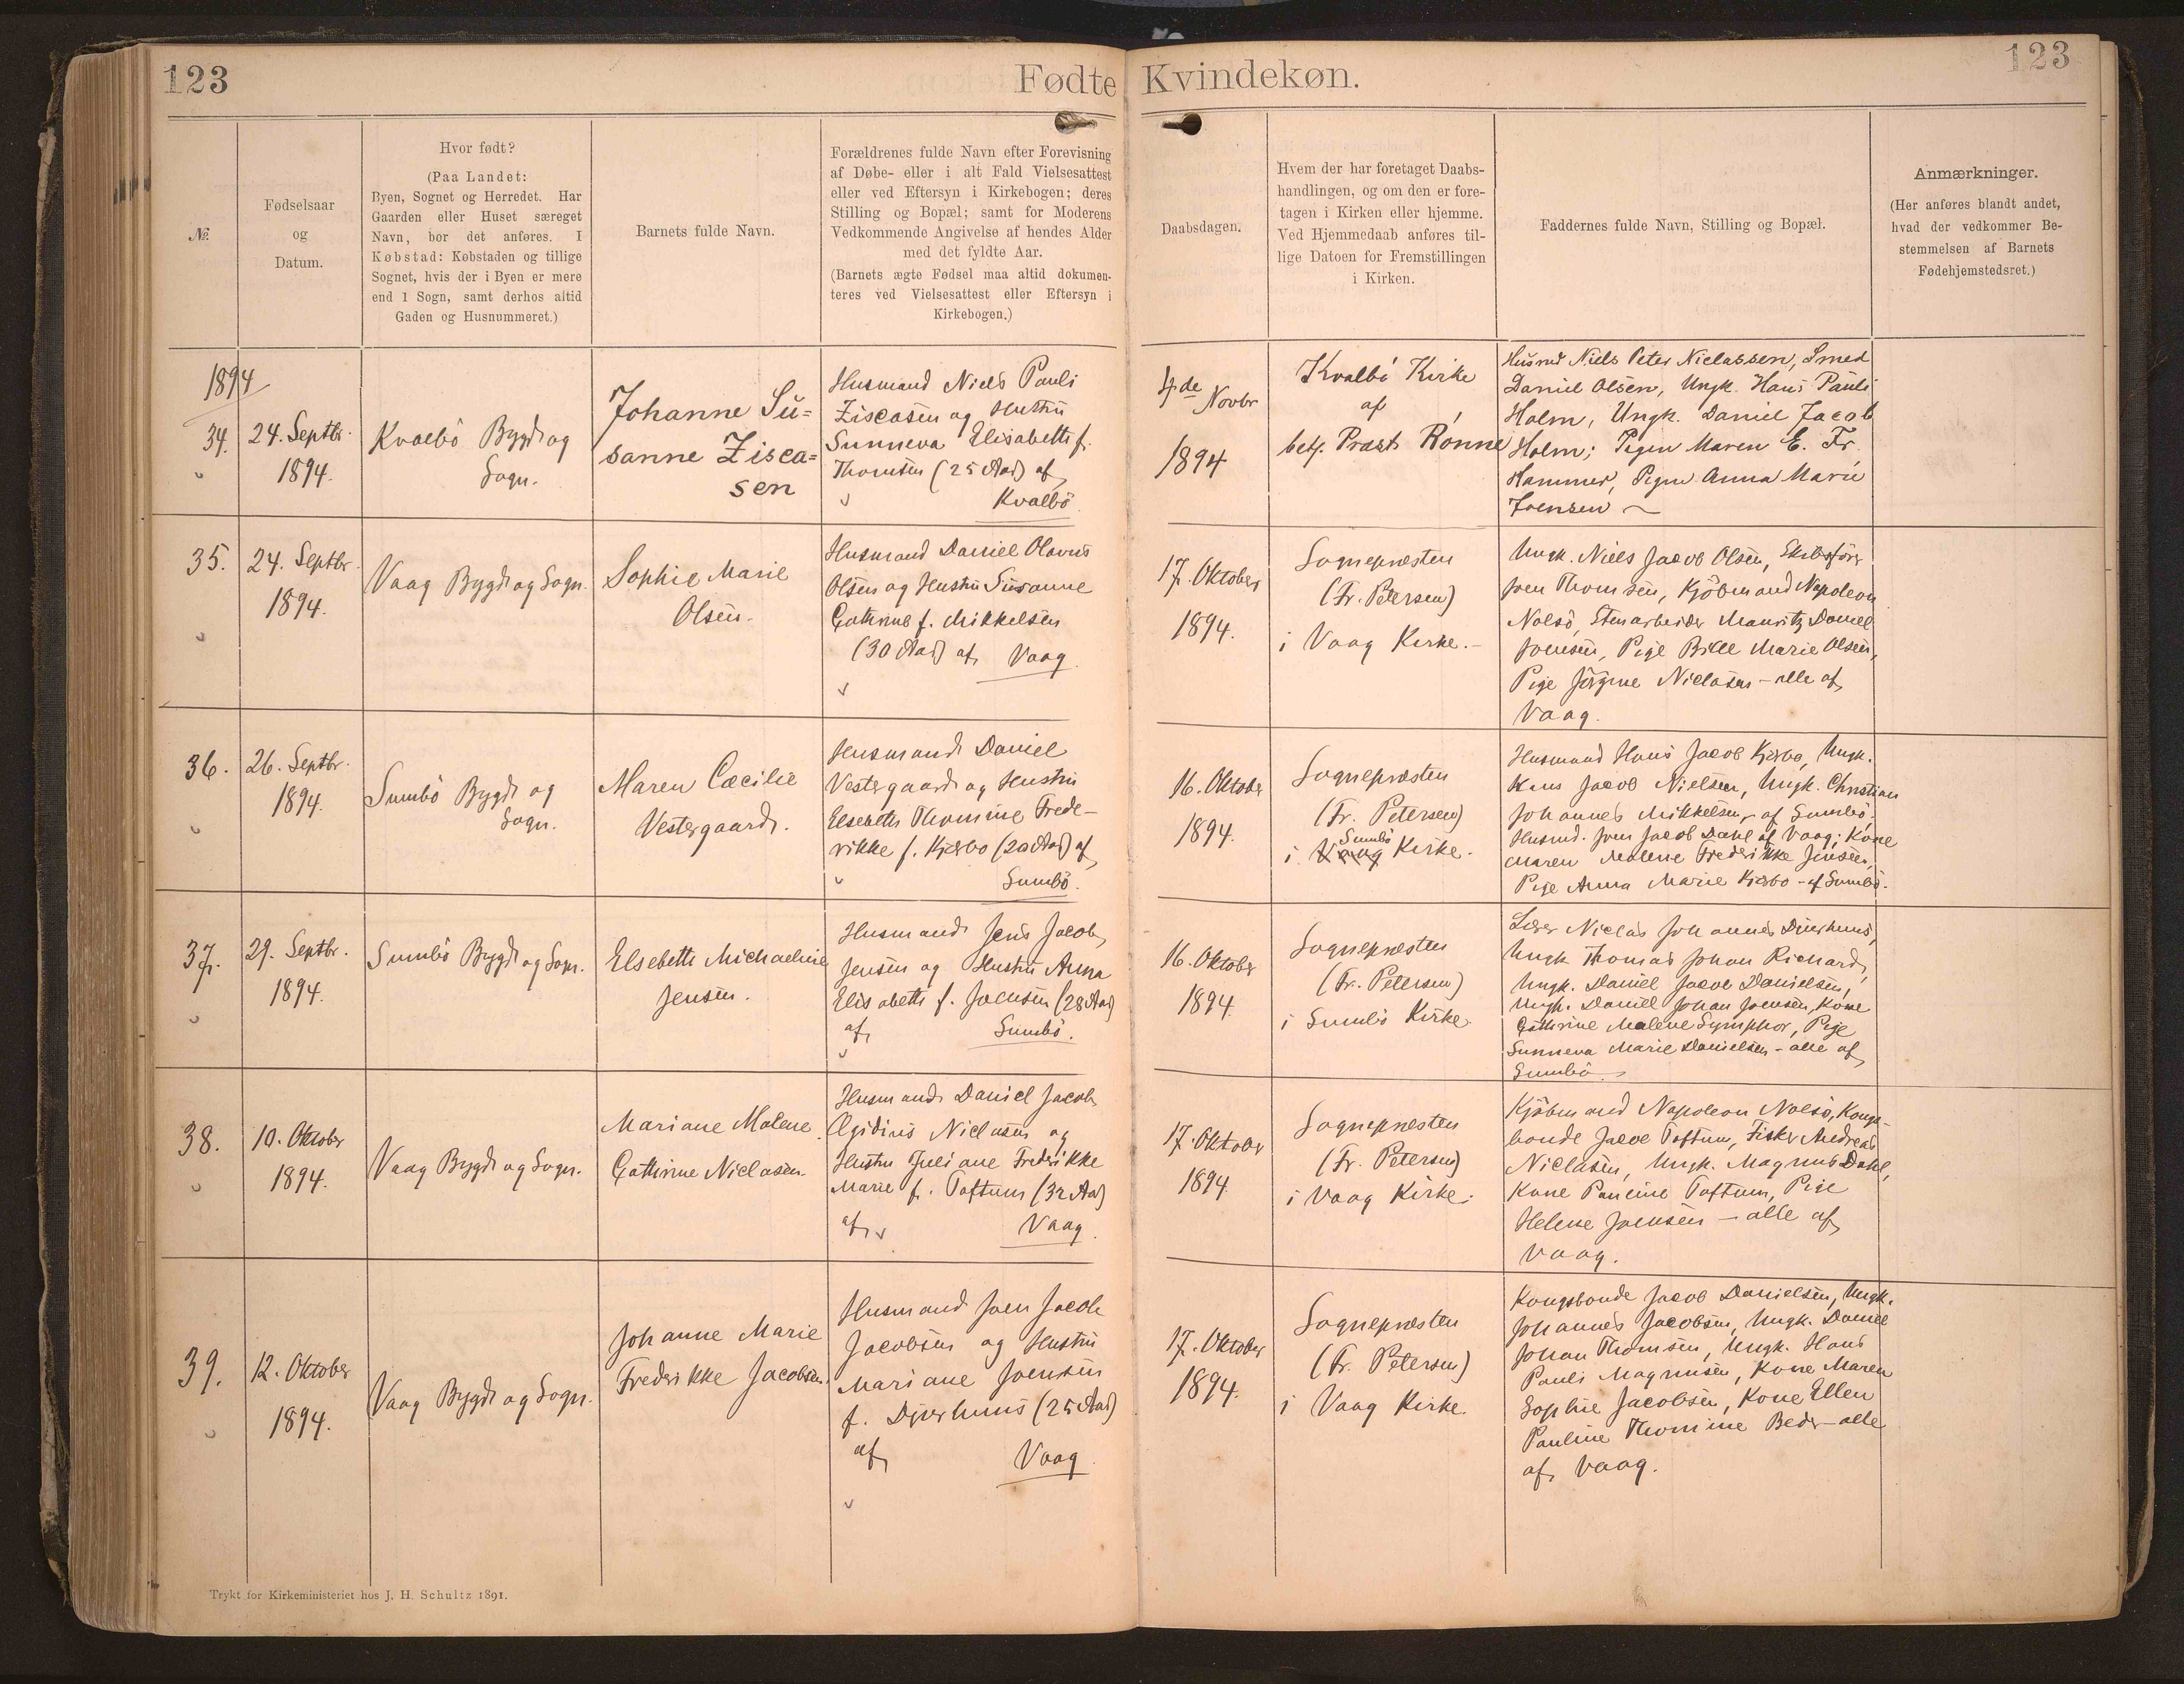 123
Fødte Kvindekøn.
123
№
Fødselsaar
og
Datum.
Hvor født?
(Paa Landet:
Byen, Sognet og Herredet. Har
Gaarden eller Huset særeget
Navn, bør det anføres. I
Købstad: Købstaden og tillige
Sognet, hvis der i Byen er mere
end 1 Sogn, samt derhos altid
Gaden og Husnummeret.)
Barnets fulde Navn.
Forældrenes fulde Navn efter Forevisning
af Døbe- eller i alt Fald Vielsesattest
eller ved Eftersyn i Kirkebogen; deres
Stilling og Bopæl; samt for Moderens
Vedkommende Angivelse af hendes Alder
med det fyldte Aar.
(Barnets ægte Fødsel maa altid dokumen-
teres ved Vielsesattest eller Eftersyn i
Kirkebogen.)
Daabsdagen.
Hvem der har foretaget Daabs-
handlingen, og om den er fore-
tagen i Kirken eller hjemme.
Ved Hjemmedaab anføres til-
lige Datoen for Fremstillingen
i Kirken.
Faddernes fulde Navn, Stilling og Bopæl.
Anmærkninger.
(Her anføres blandt andet,
hvad der vedkommer Be-
stemmelsen af Barnets
Fødehjemstedsret.)
1894
34.
24. Septbr.
1894.
Kvalbö Bygd og
Sogn.
Johanne Su=
sanne Zisca=
sen
Husmand Niels Pauli
Ziscasen og Hustru
Sunneva Elisabeth f.
Thomsen (25 Aar) af
Kvalbö.
4de Novbr
1894
Kvalbö Kirke
af
betj. Præst Rönne
Husmd Niels Peter Niclassen, Smed
Daniel Olsen, Ungk. Hans Pauli
Holm, Ungk. Daniel Jacob
Holm; Pigen Maren E. Fr.
Hammer, Pigen Anna Marie
Joensen
35.
24. Septbr.
1894.
Vaag Bygd og Sogn.
Sophie Marie
Olsen.
Husmand Daniel Olavus
Olsen og Hustru Susanne
Cathrine f. Mikkelsen
(30 Aar) af Vaag.
17. Oktober
1894.
Sognepræsten
(Fr. Petersen)
i Vaag Kirke.-
Ungk. Niels Jacob Olsen,
Joen Thomsen, Kjöbmand Napoleon
Nolsö, Stenarbeider Mauritz Daniel
Joensen, Pige Bille Marie Olsen,
Pige Jörgine Niclasen - alle af
Vaag.
36.
26. Septbr.
1894.
Sumbö Bygd og
Sogn.
Maren Cæcilie
Vestergaard.
Husmand Daniel
Vestergaard og Hustru
Elsebeth Thomine Frede-
rikke f. Kjærbo (20 Aar) af
Sumbö.
16. Oktober
1894.
Sognepræsten
(Fr. Petersen)
i Vaag Sumbö Kirke.
Husmand Hans Jacob Kjærbo, Ungk.
Hans Jacob Nielsen, Ungk. Christian
Johannes Mikkelsen, af Sumbö.
Husmd. Joen Jacob Dahl af Vaag; Kone
Maren Malene Frederikke Jensen,
Pige Anna Marie Kjærbo - af Sumbö.
37.
29. Septbr.
1894.
Sumbö Bygd og Sogn.
Elsebeth Michaeline
Jensen.
Husmand Jens Jacob
Jensen og Hustru Anna
Elisabeth f. Joensen (28 Aar)
af Sumbö.
16. Oktober
1894.
Sognepræsten
(Fr. Petersen)
i Sumbö Kirke.
Lærer Niclas Johannes Djurhuus,
Ungk Thomas Johan Richard,
Ungk. Daniel Jacob Danielsen,
Ungk. Daniel Johan Joensen, Kone
Cathrine Malene Symphor, Pige
Sunneva Marie Danielsen - alle af
Sumbö.
38.
10. Oktober
1894.
Vaag Bygd og Sogn.
Mariane Malene
Cathrine Niclasen.
Husmand Daniel Jacob
Ægidius Niclasen og
Hustru Juliane Frederikke
Marie f. Toftum (32 Aar)
af Vaag.
17. Oktober
1894.
Sognepræsten
(Fr. Petersen)
i Vaag Kirke.
Kjöbmand Napoleon Nolsö, Kongs-
bonde Jacob Toftum, Fisker Andreas
Niclasen, Ungk. Magnus Dahl,
Kone Pauline Toftum, Pige
Helene Joensen - alle af
Vaag.
39.
12. Oktober
1894.
Vaag Bygd og Sogn.
Johanne Marie
Frederikke Jacobsen.
Husmand Joen Jacob
Jacobsen og Hustru
Mariane Joensen
f. Djurhuus (25 Aar)
af Vaag.
17. Oktober
1894.
Sognepræsten
(Fr. Petersen)
i Vaag Kirke.
Kongsbonde Jacob Danielsen, Ungk.
Johannes Jacobsen, Ungk. Daniel
Johan Thomsen, Ungk. Hans
Pauli Magnusen, Kone Maren
Sophie Jacobsen, Kone Ellen
Pauline Thomine Beder - alle
af Vaag.
Trykt for Kirkeministeriet hos J. H. Schultz 1891.